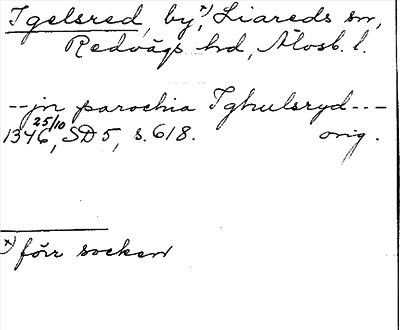 Igelsred, by,x) Liareds sn,
Redvägs hd, Älvsb. l.
--jn parochia Ighulsryd---
25/10
1346, SD 5, s. 618. orig.
x) förr socken